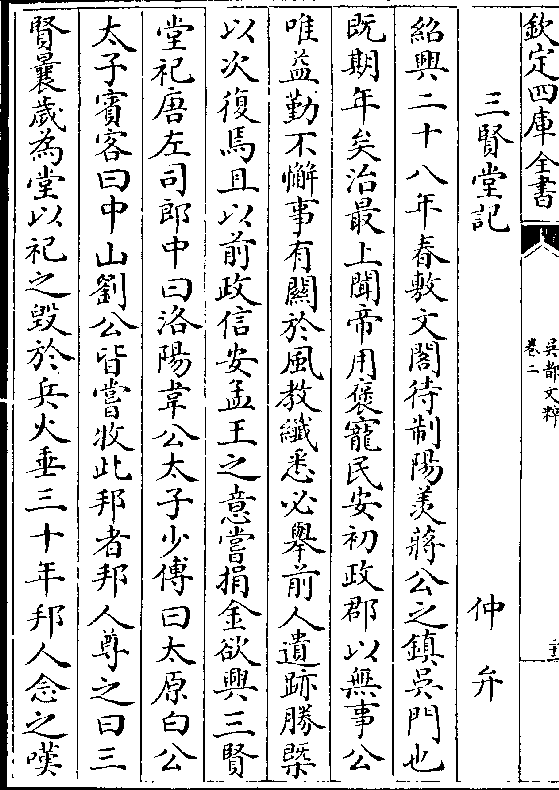 欽定四庫全書
吳都文粹
卷二
三賢堂記
仲并
紹興二十八年春敷文閣待制陽羨蔣公之鎮吳門也
既期年矣治最上聞帝用褒寵民安初政郡以無事公
唯益勤不懈事有闗於風教纎悉必舉前人遺跡勝槩
以次復焉且以前政信安孟王之意嘗捐金欲興三賢
堂祀唐左司郎中曰洛陽韋公太子少傅曰太原白公
太子賓客曰中山劉公皆嘗牧此邦者邦人尊之曰三
賢曩歲為堂以祀之毀於兵火垂三十年邦人念之嘆